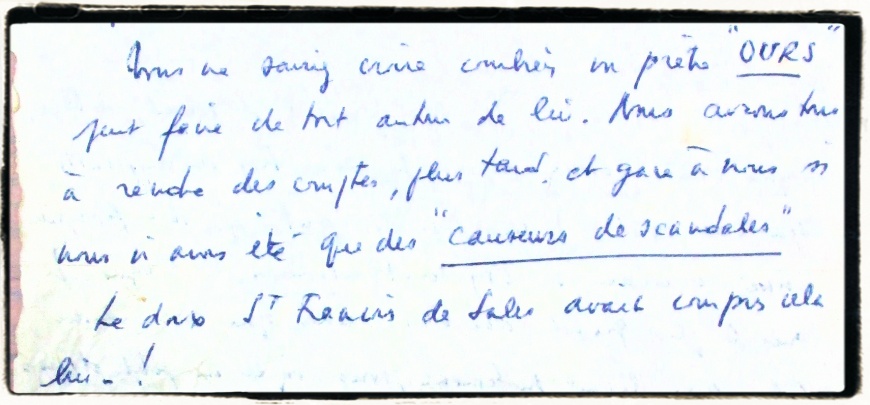 Vous ne sauriez croire combien un prêtre "OURS"
peut faire de tort autour de lui. Nous aurons tous
à rendre des comptes, plus tard, et gare à nous si
nous n'avons été que des "causeurs de scandales"
Le doux St François de Sales avait compris cela
lui - !